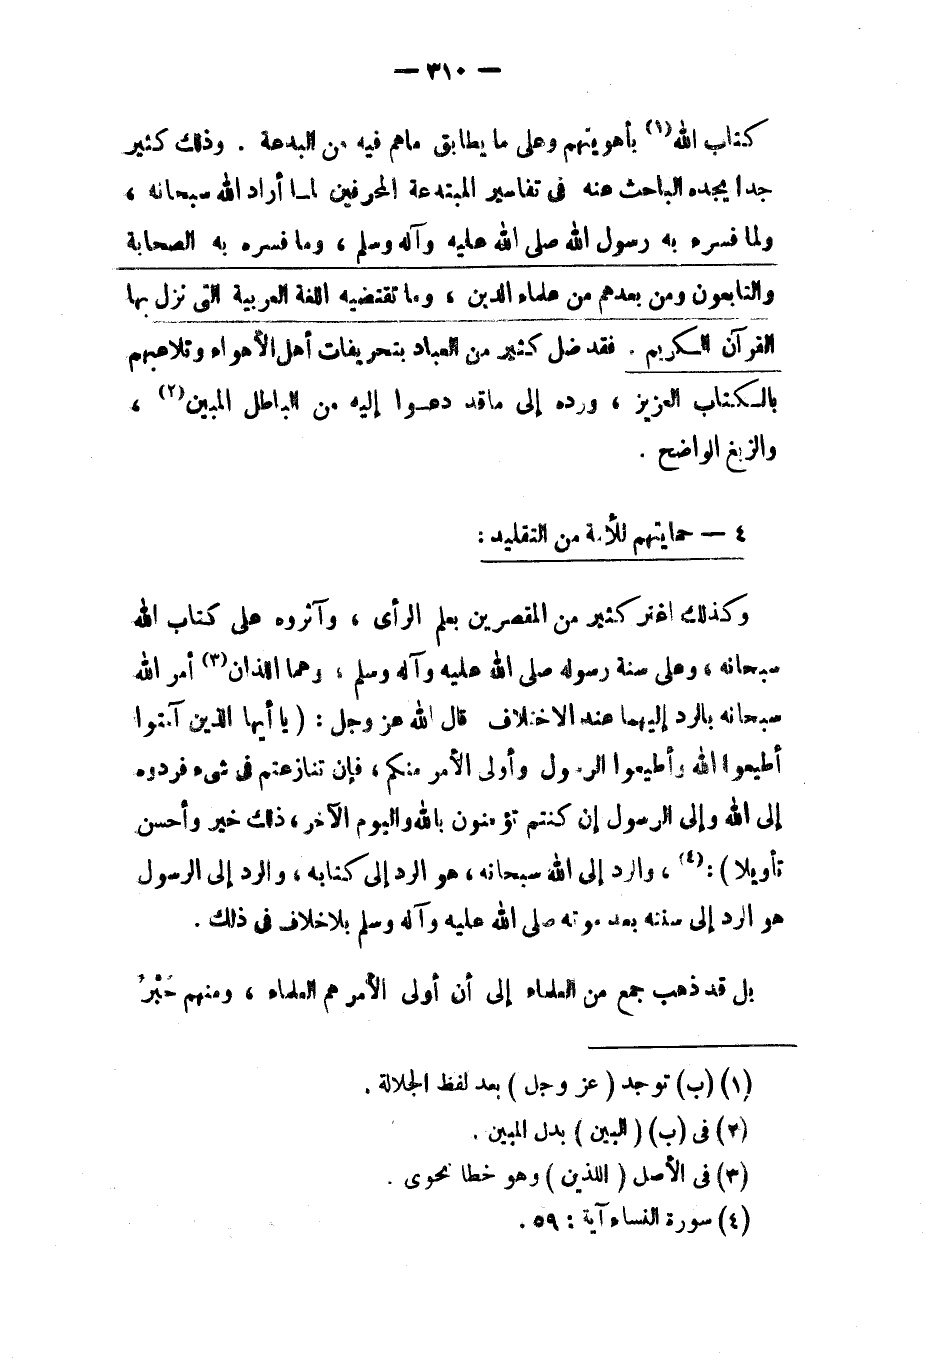 — ٣١٠ —
كتاب الله(١) بأهويتهم وعلى ما يطابق ماهم فيه من البدعة . وذلك كثير
جدا يجده الباحث عنه فى تفاسير المبتدعة المحرفين لما أراد الله سبحانه ،
ولما فسره به رسول الله صلى الله عليه وآله وسلم ، وما فسره به الصحابة
والتابعون ومن بعدهم من علماء الدين ، وما تقتضيه اللغة العربية التى نزل بها
القرآن الكريم . فقد ضل كثير من العباد بتحريفات أهل الأهواء وتلاعبهم
بالكتاب العزيز ، ورده إلى ماقد دعوا إليه من الباطل المبين(٢) ،
والزيغ الواضح .
٤ — حمايتهم للأمة من التقليد :
وكذلك اغتر كثير من المقصرين بعلم الرأى ، وآثروه على كتاب الله
سبحانه ، وعلى سنة رسوله صلى الله عليه وآله وسلم ، وهما اللذان(٣) أمر الله
سبحانه بالرد إليهما عند الاختلاف قال الله عز وجل : ( يا أيها الذين آمنوا
أطيعوا الله وأطيعوا الرسول وأولى الأمر منكم ، فإن تنازعتم فى شىء فردوه
إلى الله وإلى الرسول إن كنتم تؤمنون بالله واليوم الآخر ، ذلك خير وأحسن
تأويلا ) :(٤) ، والرد إلى الله سبحانه ، هو الرد إلى كتابه ، والرد إلى الرسول
هو الرد إلى سنته بعد موته صلى الله عليه وآله وسلم بلاخلاف فى ذلك .
بل قد ذهب جمع من العلماء إلى أن أولى الأمر هم العلماء ، ومنهم حَبْرُ
(١) (ب) توجد ( عز وجل ) بعد لفظ الجلالة .
(٢) فى (ب) ( البين ) بدل المبين .
(٣) فى الأصل ( اللذين ) وهو خطا نحوى .
(٤) سورة النساء آية : ٥٩ .